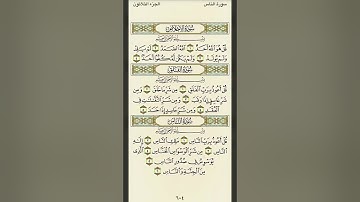 سورة الناس
الجزء الثلاثون
سُورَةُ الإِخْلَاصِ
قُلْ هُوَ اللَّهُ أَحَدٌ ۝ اللَّهُ الصَّمَدُ ۝ لَمْ يَلِدْ
وَلَمْ يُولَدْ ۝ وَلَمْ يَكُن لَّهُ كُفُوًا أَحَدٌ ۝
سُورَةُ الفَلَقِ
قُلْ أَعُوذُ بِرَبِّ الْفَلَقِ ۝ مِن شَرِّ مَا خَلَقَ ۝ وَمِن
شَرِّ غَاسِقٍ إِذَا وَقَبَ ۝ وَمِن شَرِّ النَّفَّاثَاتِ فِي
الْعُقَدِ ۝ وَمِن شَرِّ حَاسِدٍ إِذَا حَسَدَ ۝
سُورَةُ النَّاسِ
قُلْ أَعُوذُ بِرَبِّ النَّاسِ ۝ مَلِكِ النَّاسِ ۝ إِلَهِ
النَّاسِ ۝ مِن شَرِّ الْوَسْوَاسِ الْخَنَّاسِ ۝ الَّذِي
يُوَسْوِسُ فِي صُدُورِ النَّاسِ ۝
مِنَ الْجِنَّةِ وَالنَّاسِ ۝
٦٠٤